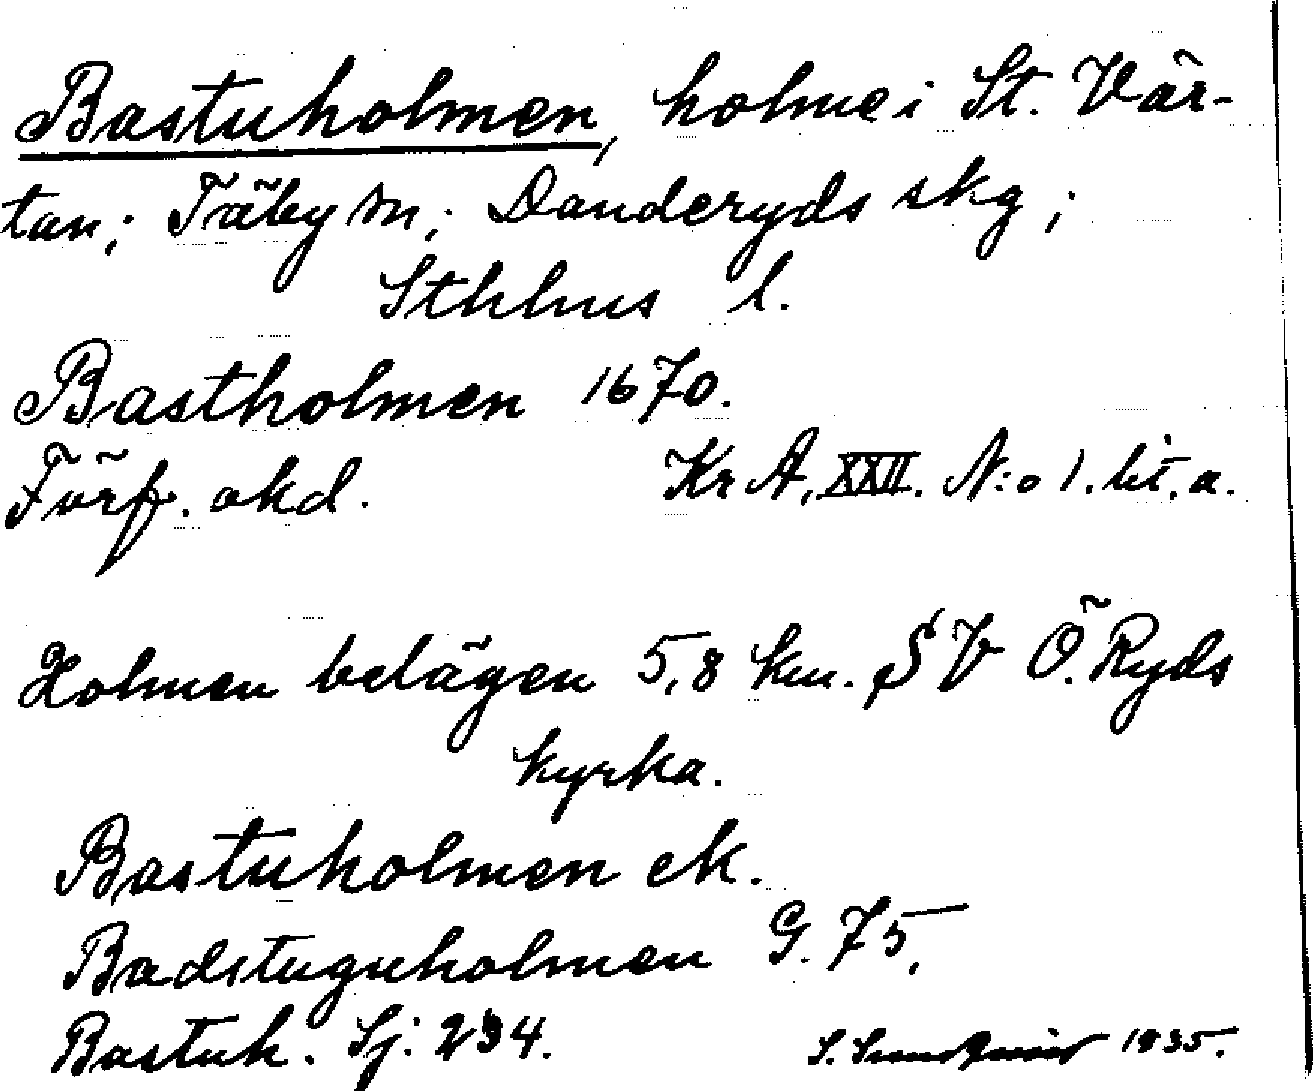 Bastuholmen, holme i St. Vär-
tan; Täby sn; Danderyds skg;
Sthlms l.
Bastholmen 1670.
Förf. okd. KrA, XXII. N:o 1. lit. a.
Holmen belägen 5,8 km. SV Ö. Ryds
kyrka.
Bastuholmen ek.
Badstuguholmen G. 75,
Bastuh. Sj. 234.
S. 1935.